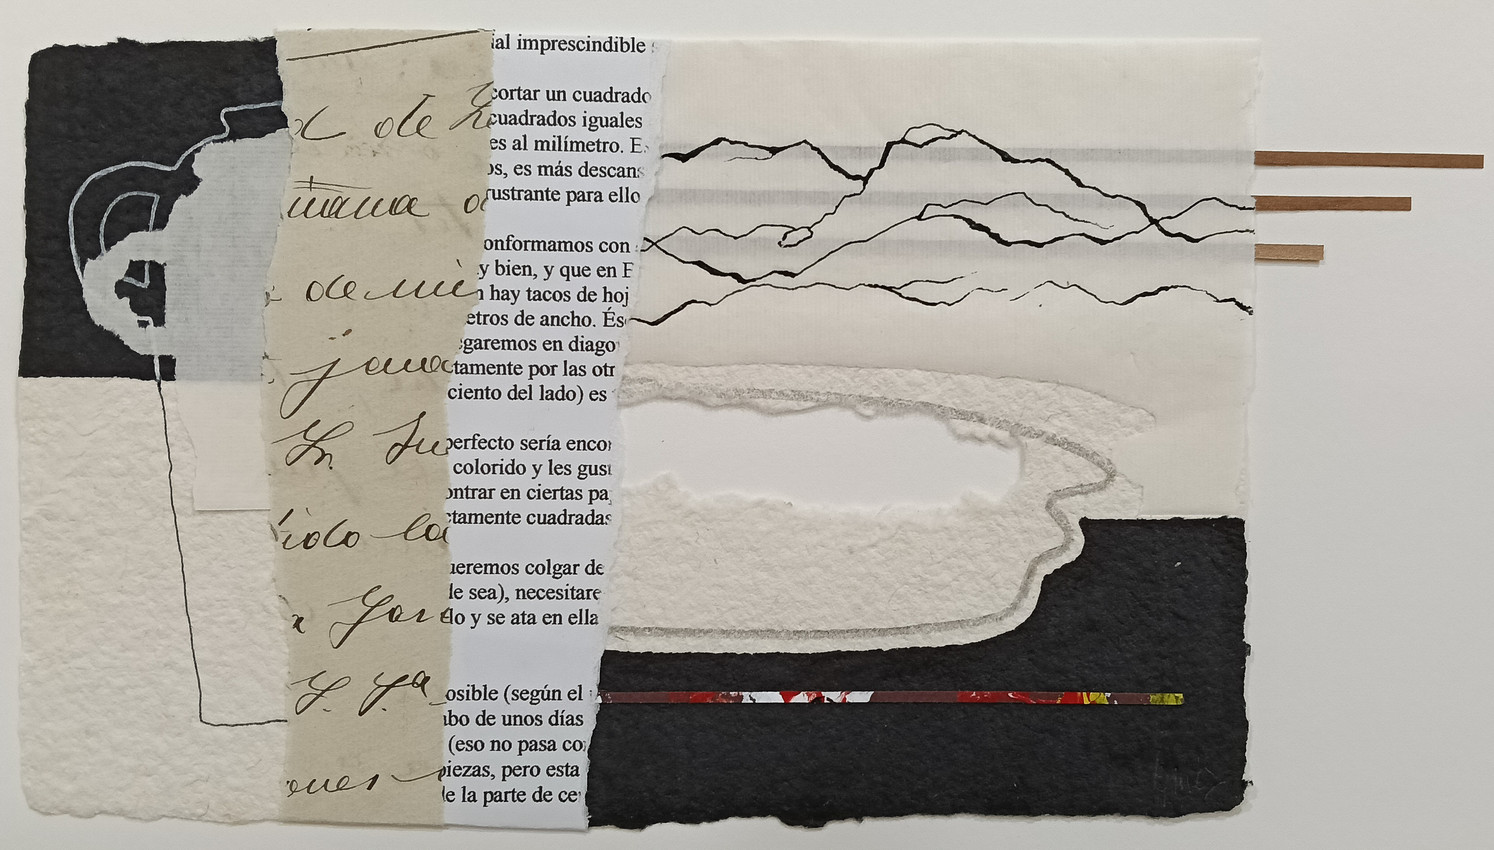 d de
mana
de mi
ido la
ial imprescindible
cortar un cuadrado
cuadrados iguales
es al milímetro. E
os, es más descans
rustrante para ello
onformamos con
y bien, y que en F
n hay tacos de hoj
etros de ancho. És
egaremos en diago
ctamente por las otr
ciento del lado) es
perfecto sería encon
colorido y les gust
ontrar en ciertas pa
ctamente cuadradas
ueremos colgar de
le sea), necesitare
do y se ata en ella
osible (según el
abo de unos días
(eso no pasa co
piezas, pero esta
de la parte de ce